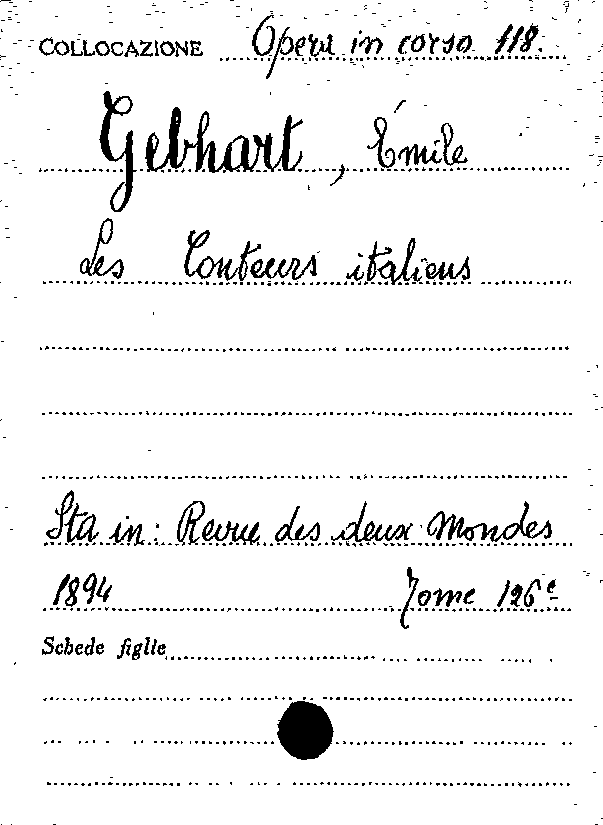 COLLOCAZIONE Opera in corso 118.
Gebhart, Émile
Les Conteurs italiens
Sta in: Revue des deux Mondes
1894 Tome 126e
Schede figlie